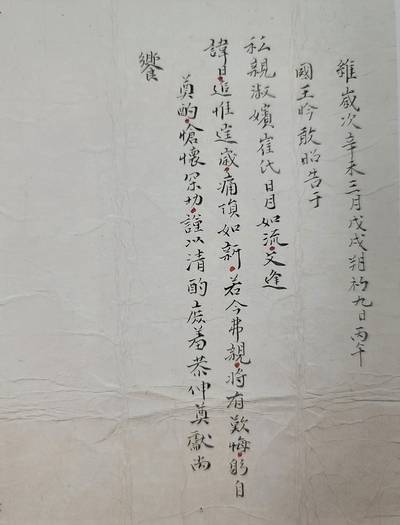 維歲次辛未三月戊戌朔初九日丙午
國王昑敢昭告于
私親淑嬪崔氏日月如流又逢
諱日追惟歲痛隕如新若今弗親將有歎悔躬自
奠酌愴懷罙切謹以清酌庶羞恭伸奠獻尚
饗